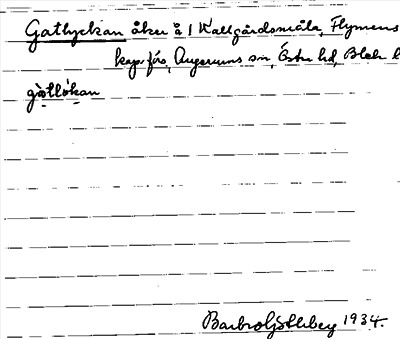 Gatlyckan åker å 1 Kallgårdsmåla, Flymens
kapförs, Augerums sn, Östra hd, Blek l
gàtlökan
Barbro 1934.